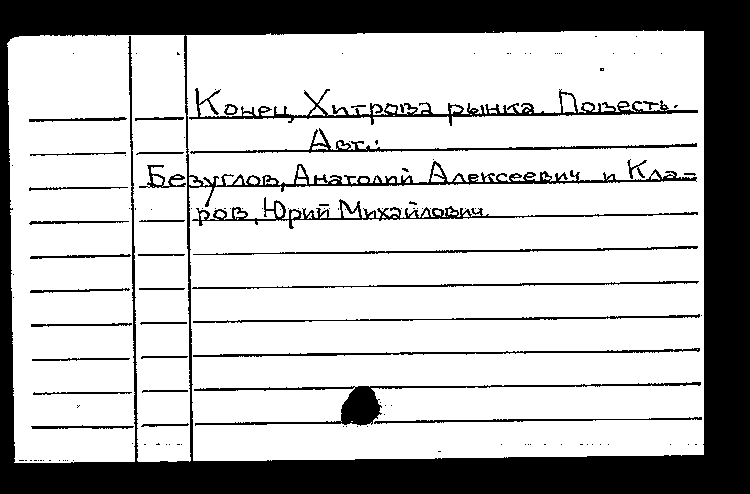 Конец Хитрова рынка. Повесть.
Авт.:
Безуглов, Анатолий Алексеевич и Кла=
ров, Юрий Михайлович.